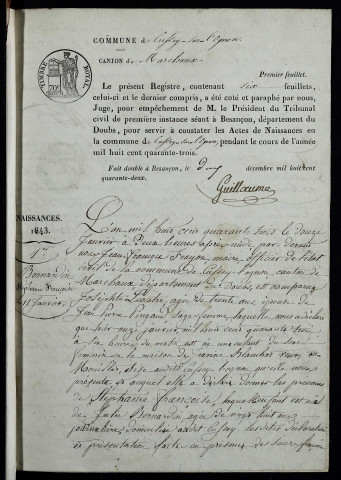 COMMUNE de Cussey-sur-l'Ognon
CANTON de Marchaux
TIMBRE ROYAL
Premier feuillet.
Le présent Registre, contenant six feuillets,
celui-ci et le dernier compris, a été coté et paraphé par nous,
Juge, pour empêchement de M. le Président du Tribunal
civil de première instance séant à Besançon, département du
Doubs, pour servir à constater les Actes de Naissances en
la commune de Cussey-sur-l'Ognon, pendant le cours de l'année
mil huit cent quarante-trois.
Fait double à Besançon, le décembre mil huit cent
quarante-deux.
Guillaume
NAISSANCES.
1843.
1er
Bernardin
Stéphanie Françoise
11 Janvier.
L'an mil huit cent quarante trois le douze
Janvier à deux heures après midi par devant
nous Jean François maire, officier de l'état
civil de la commune de Cussey-l'ognon, canton de
Marchaux département du Doubs, est comparue
agée de trente ans épouse de
sage femme, laquelle nous a déclaré
que hier onze janvier, mil huit cent quarante trois
à heures du matin, est né un enfant du sexe
féminin en la maison de Jeanne
dudit Cussey l'ognon qu'elle nous
présente et auquel elle a déclaré donner les prénoms
de Stéphanie Françoise, lequel enfant est né
de Bernardin agée de vingt huit ans
journalière, domiciliée audit Cussey. les dites déclaration
et présentation faites en présence de